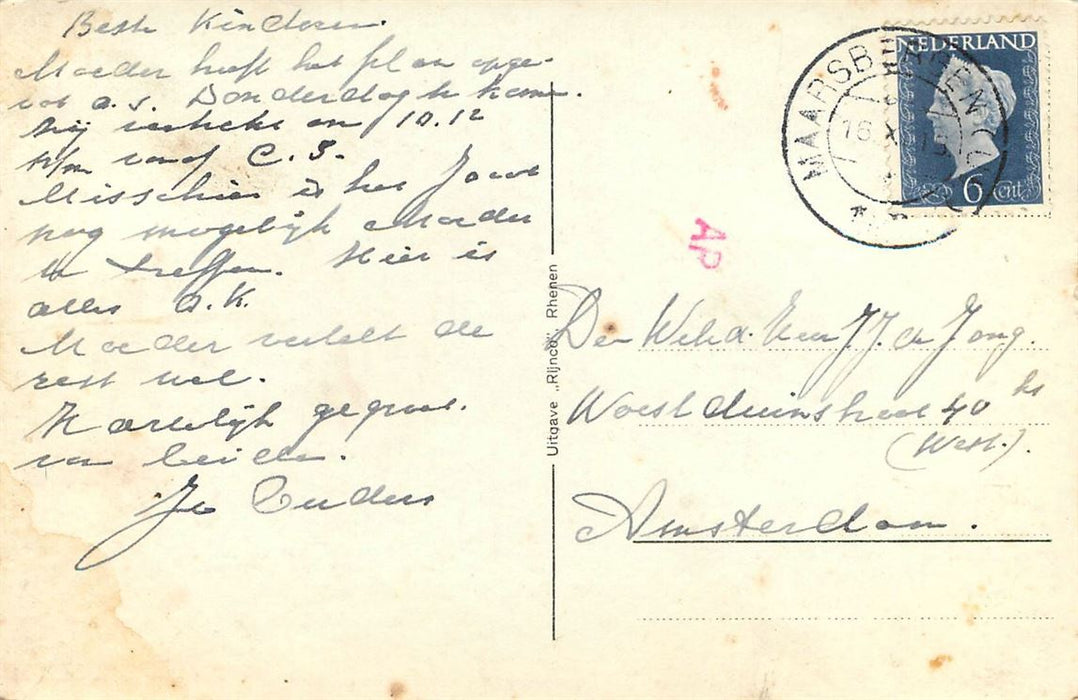 Beste Kinderen.
Moeder heeft het plan opge-
vat a.s. Donderdag te komen.
Zij vertrekt om 10.12
van af C.S.
Misschien is het jou
nog mogelijk Moeder
te treffen. Hier is
alles o.K.
Moeder vertelt de
rest wel.
Hartelijk gegroet.
van beiden.
Uitgave „Rijnco”, Rhenen
MAARSBERGEN
NEDERLAND
6 cent
AP
Den Weled. Heer J.J. de Jong.
Woestduinstraat 40 hs
(West.).
Amsterdam.